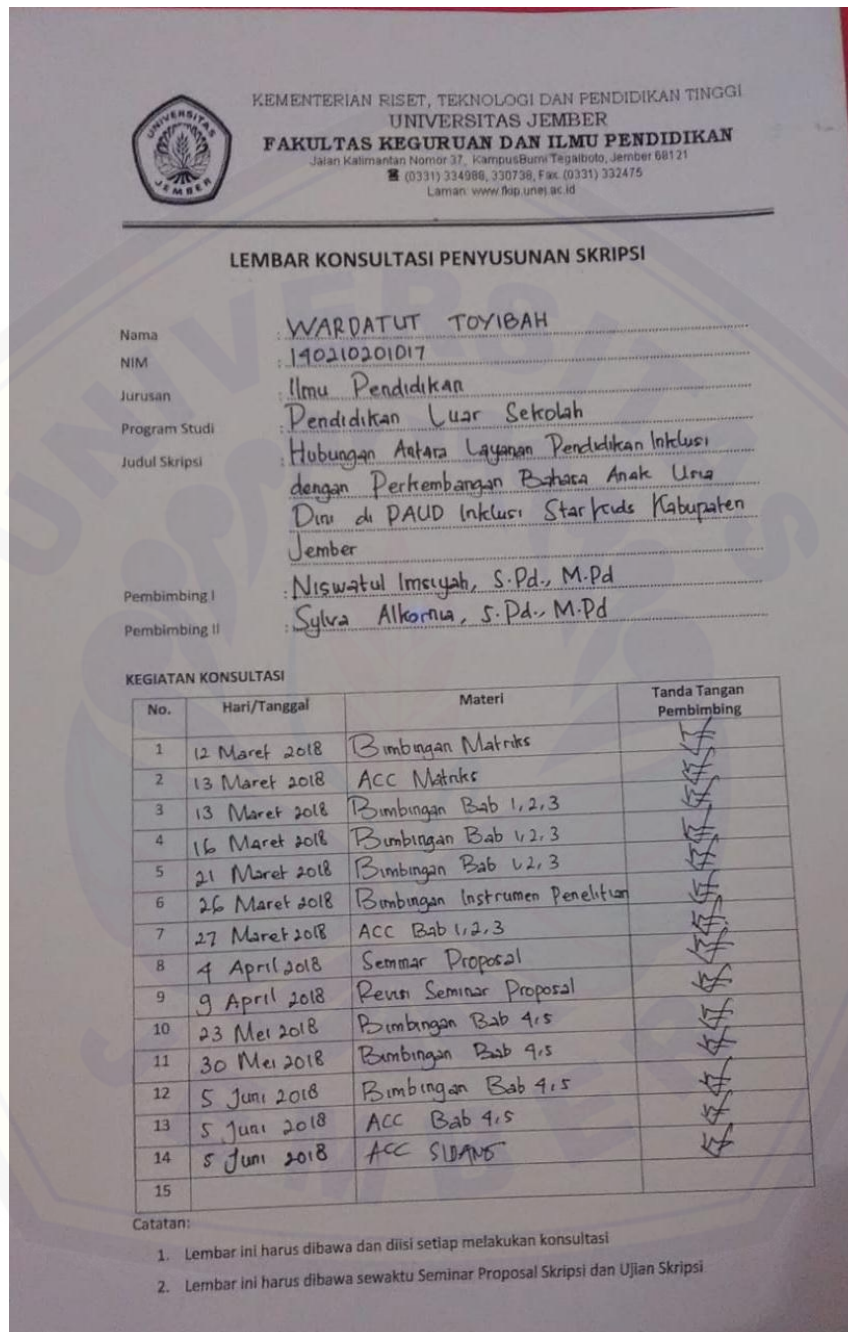 UNIVERSITAS JEMBER
KEMENTERIAN RISET, TEKNOLOGI DAN PENDIDIKAN TINGGI
UNIVERSITAS JEMBER
FAKULTAS KEGURUAN DAN ILMU PENDIDIKAN
Jalan Kalimantan Nomor 37, KampusBumi Tegalboto, Jember 68121
☎ (0331) 334988, 330738, Fax. (0331) 332475
Laman: www.fkip.unej.ac.id
LEMBAR KONSULTASI PENYUSUNAN SKRIPSI
Nama : WARDATUT TOYIBAH
NIM : 140210201017
Jurusan : Ilmu Pendidikan
Program Studi : Pendidikan Luar Sekolah
Judul Skripsi : Hubungan Antara Layanan Pendidikan Inklusi
dengan Perkembangan Bahasa Anak Usia
Dini di PAUD Inklusi Star Kids Kabupaten
Jember
Pembimbing I : Niswatul Imsiyah, S.Pd., M.Pd
Pembimbing II : Sylva Alkornia, S.Pd., M.Pd
KEGIATAN KONSULTASI
No. Hari/Tanggal Materi Tanda Tangan
Pembimbing
1 12 Maret 2018 Bimbingan Matriks
2 13 Maret 2018 ACC Matriks
3 13 Maret 2018 Bimbingan Bab 1,2,3
4 16 Maret 2018 Bimbingan Bab 1,2,3
5 21 Maret 2018 Bimbingan Bab 1,2,3
6 26 Maret 2018 Bimbingan Instrumen Penelitian
7 27 Maret 2018 ACC Bab 1,2,3
8 4 April 2018 Seminar Proposal
9 9 April 2018 Revisi Seminar Proposal
10 23 Mei 2018 Bimbingan Bab 4,5
11 30 Mei 2018 Bimbingan Bab 4,5
12 5 Juni 2018 Bimbingan Bab 4,5
13 5 Juni 2018 ACC Bab 4,5
14 5 Juni 2018 ACC SIDANG
15
Catatan:
1. Lembar ini harus dibawa dan diisi setiap melakukan konsultasi
2. Lembar ini harus dibawa sewaktu Seminar Proposal Skripsi dan Ujian Skripsi